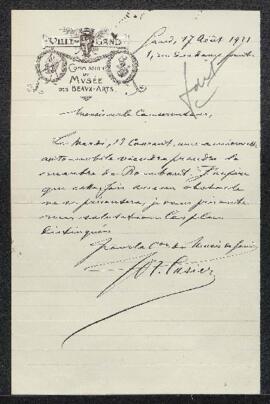 VILLE DE GAND
COMMISSION
DU
MUSÉE
DES BEAUX-ARTS
Gand, 17 Août 1911
1, rue
fait
Monsieur le Conservateur,
Le Mardi, 22 Courant, une
automobile viendra prendre le
marbre de Rombaux. J'espère
que cette fois aucun obstacle
ne se présentera, je vous présente
mes salutations les plus
distinguées
Pour la Con du Musée de Gand
Casier